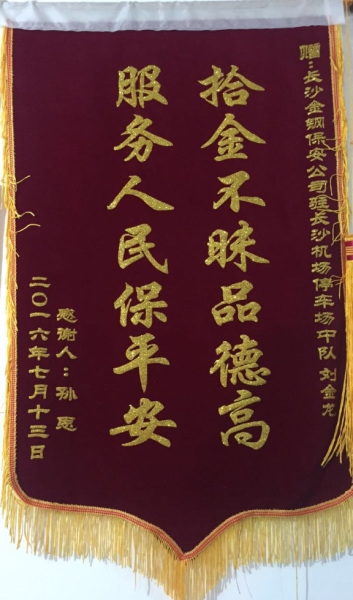 赠：长沙金钢保安公司驻长沙机场停车场中队 刘金龙
拾金不昧品德高
服务人民保平安
感谢人：孙勇
二〇一六年七月十三日